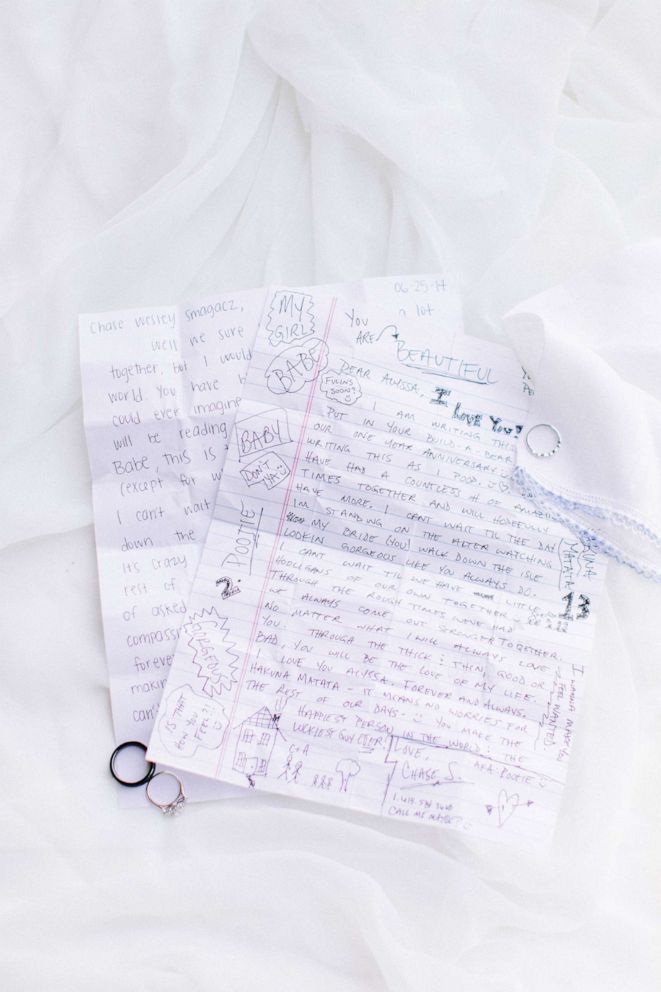 06-25-14
Chase Wesley Smagacz,
a lot
Well we sure
together, but I would
world. You have
could ever imagine
will be reading
Babe, this is
(except for w
I can't wait
down the
It's crazy
rest of
of asked
compassi
forever
makin
can't
MY
GIRL
YOU
ARE
BEAUTIFUL
BABE
DEAR ALYSSA,
I LOVE YOU!
I AM WRITING THIS
PUT IN YOUR BUILD-A-BEAR
OUR ONE YEAR ANNIVERSARY
WRITING THIS AS I POOP.
HAVE HAD A COUNTLESS # OF AMAZI
TIMES TOGETHER AND WILL HOPEFULLY
HAVE MORE. I CANT WAIT TIL THE DAY
IM STANDING ON THE ALTER WATCHING
MY BRIDE (YOU) WALK DOWN THE ISLE
LOOKIN GORGEOUS LIKE YOU ALWAYS DO.
I CANT WAIT TIL WE HAVE LITTLE
HOOLIGANS OF OUR OWN TOGETHER
THROUGH THE ROUGH TIMES WEVE HAD
WE ALWAYS COME OUT STRONGER TOGETHER.
NO MATTER WHAT I WILL ALWAYS LOVE
YOU. THROUGH THE THICK & THEN, GOOD OR
BAD, YOU WILL BE THE LOVE OF MY LIFE.
I LOVE YOU ALYSSA, FOREVER AND ALWAYS.
HAKUNA MATATA - IT MEANS NO WORRIES FOR
THE REST OF OUR DAYS. YOU MAKE THE
HAPPIEST PERSON IN THE WORLD. THE
LUCKIEST GUY EVER!
LOVE,
AKA: POOTIE
CHASE S.
CALL ME MAYBE?
BABY
DON'T
HA
POOTIE
2.
13
GORGEOUS
IS THAT
HOW YOU
FEEL?!
C + A
I WANNA MAKE YOU
FEEL WANTED